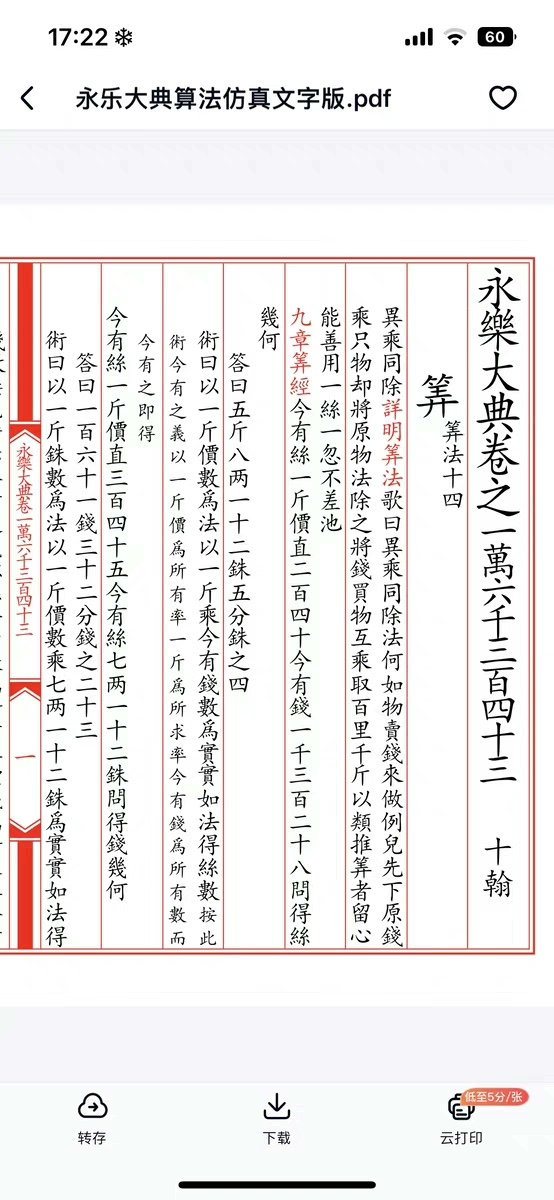 17:22
60
永乐大典算法仿真文字版.pdf
永樂大典卷之一萬六千三百四十三 十翰
筭 筭法十四
異乘同除詳明筭法歌曰異乘同除法何如物賣錢來做例兒先下原錢
乘只物却將原物法除之將錢買物互乘取百里千斤以類推筭者留心
能善用一絲一忽不差池
九章筭經今有絲一斤價直二百四十今有錢一千三百二十八問得絲
幾何
答曰五斤八两一十二銖五分銖之四
術曰以一斤價數爲法以一斤乘今有錢數爲實實如法得絲數按此
術今有之義以一斤價爲所有率一斤爲所求率今有錢爲所有數而
今有之即得
今有絲一斤價直三百四十五今有絲七两一十二銖問得錢幾何
答曰一百六十一錢三十二分錢之二十三
術曰以一斤銖數爲法以一斤價數乘七两一十二銖爲實實如法得
永樂大典卷一萬六千三百四十三
一
转存
下载
云打印
低至5分/张